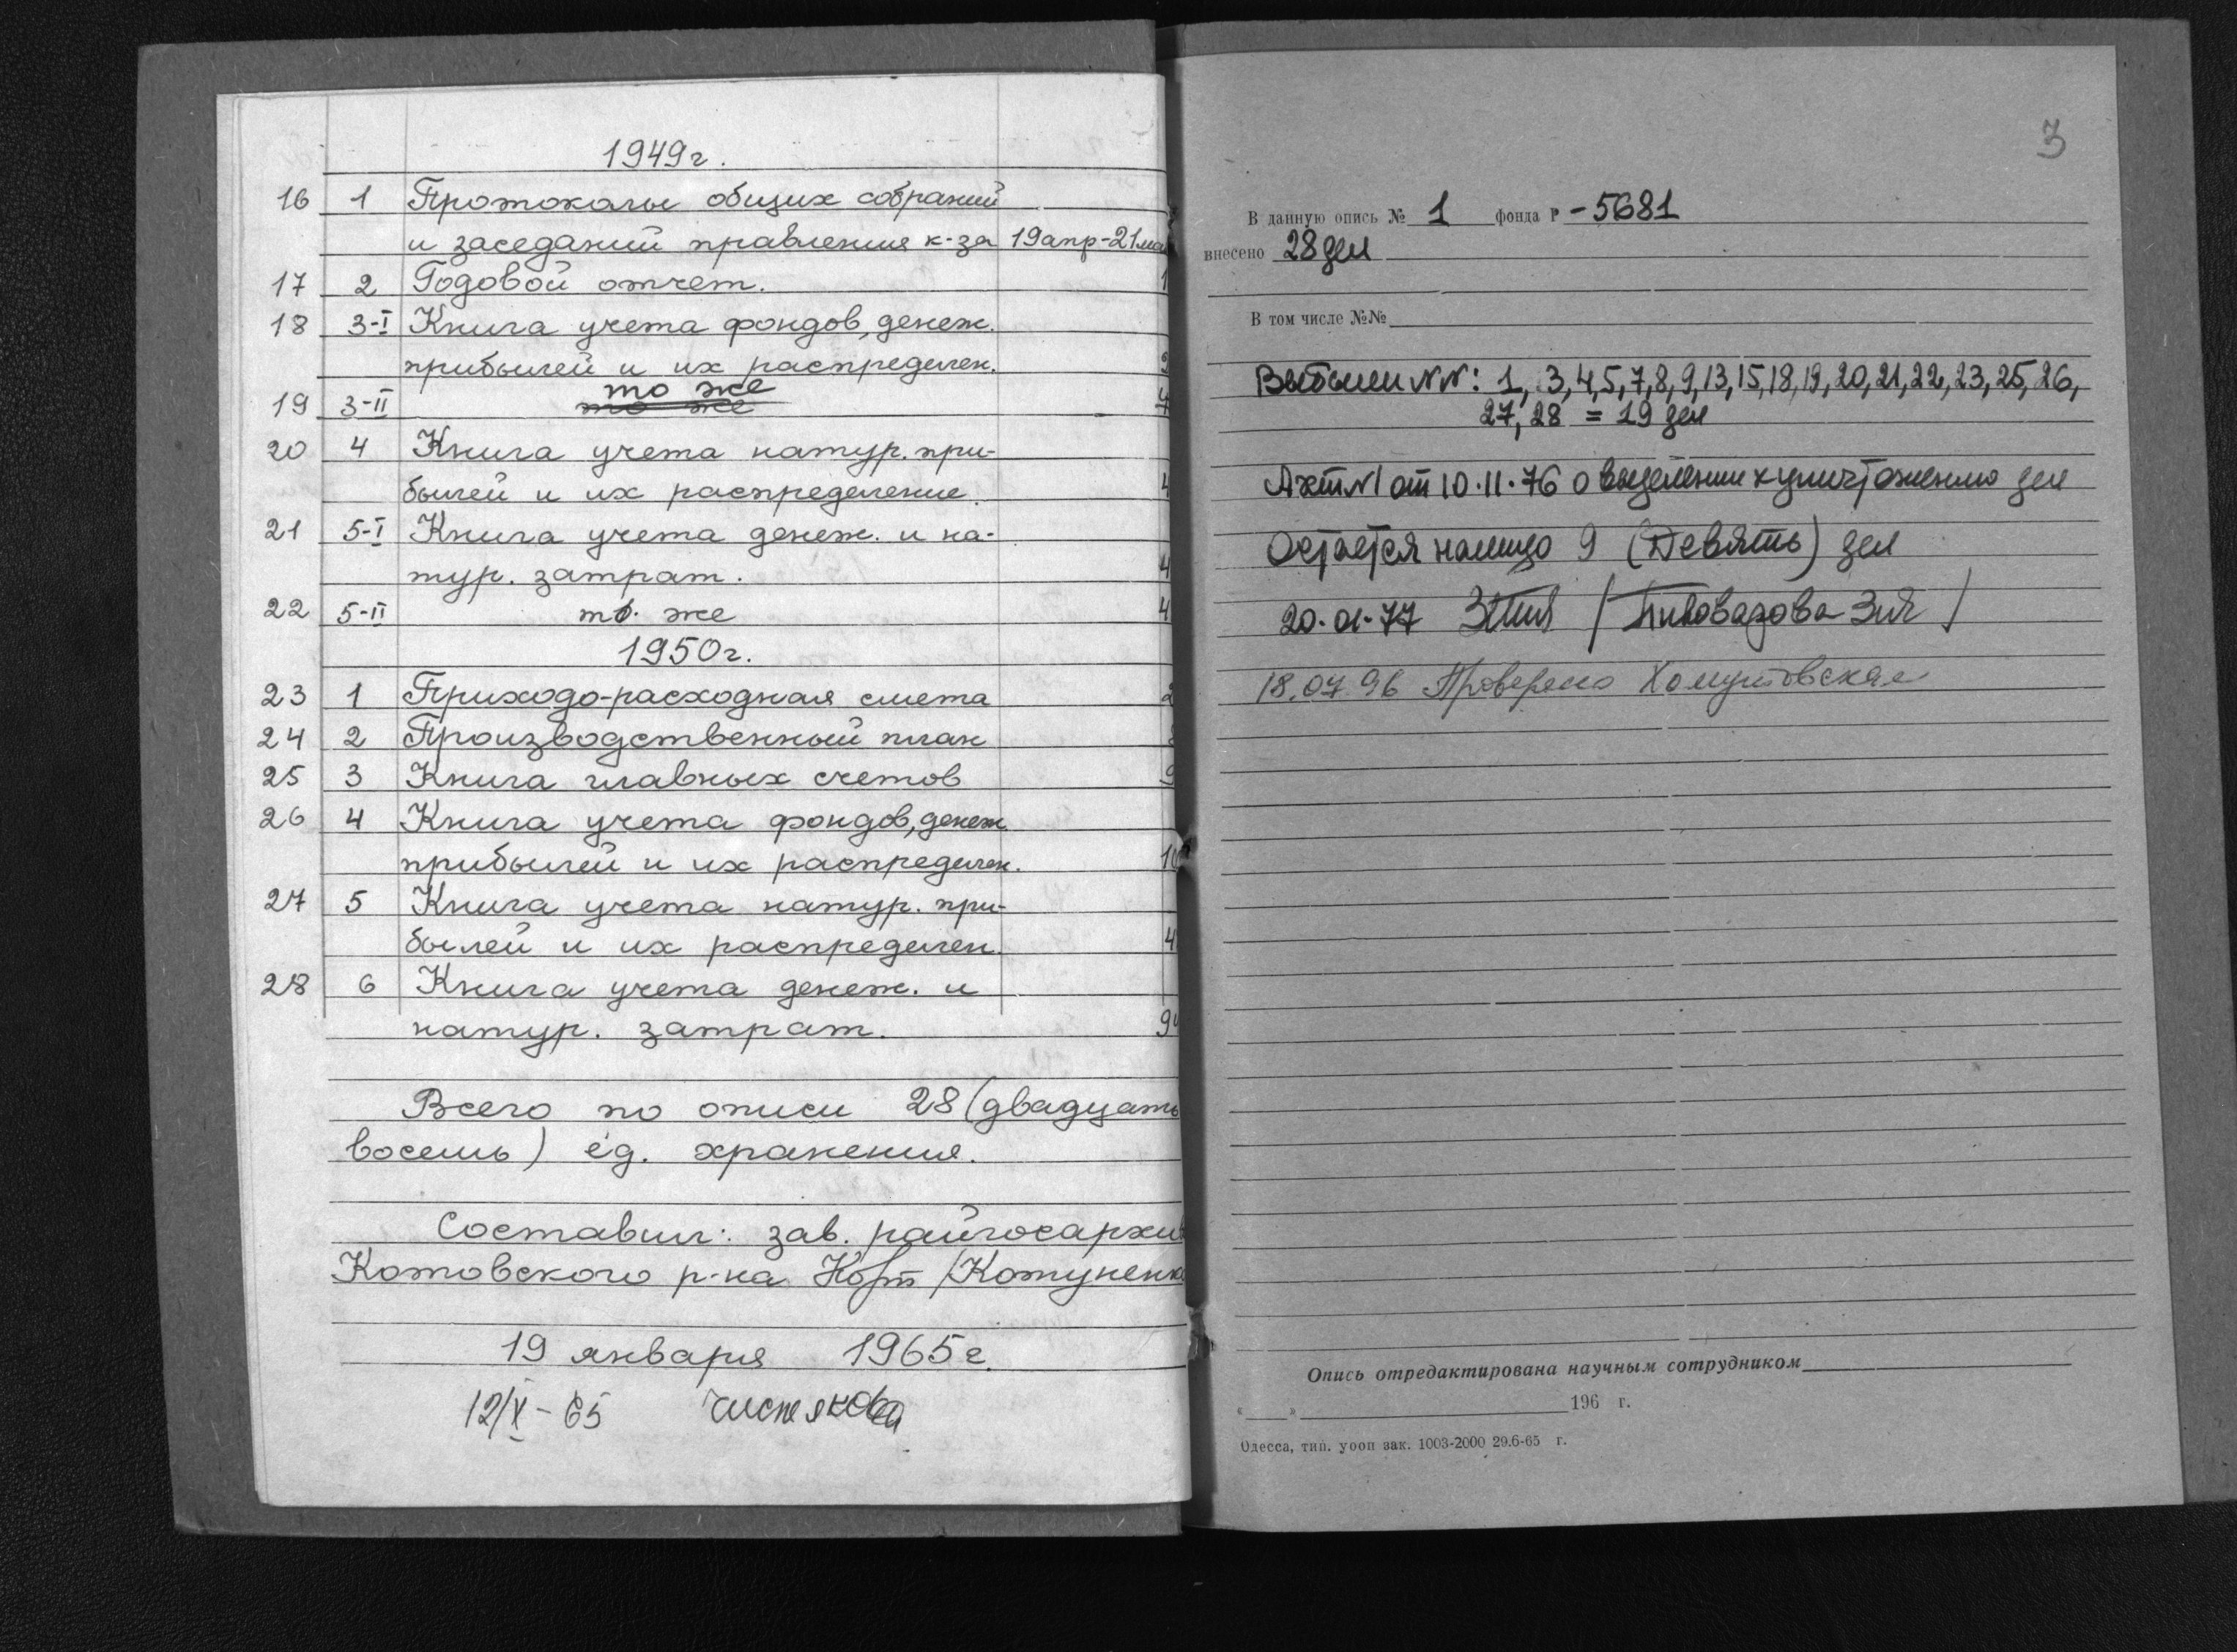 1949г.
16 1 Протоколы общих собраний
и заседаний правления к-за 19апр-21ма
17 2 Годовой отчет. 1
18 3-I Книга учета фондов, денеж.
прибылей и их распределен.
19 3-II то же
то же
20 4 Книга учета натур. при-
былей и их распределение. 4
21 5-I Книга учета денеж. и на-
тур. затрат. 4
22 5-II то же 4
1950г.
23 1 Приходо-расходная смета 2
24 2 Производственный план
25 3 Книга главных счетов 9
26 4 Книга учета фондов, денеж
прибылей и их распределен. 10
27 5 Книга учета натур. при-
былей и их распределен. 4
28 6 Книга учета денеж. и
натур. затрат. 9
Всего по описи 28 (двадцать
восемь) ед. хранения.
Составил: зав. райгосархив
Котовского р-на /Котуненк
19 января 1965г.
12/X-65 Чистякова
3
В данную опись № 1 фонда Р-5681
внесено 28 дел
В том числе №№
Выбыли NN: 1, 3, 4, 5, 7, 8, 9, 13, 15, 18, 19, 20, 21, 22, 23, 25, 26,
27, 28 = 19 дел
Акт N1 от 10.11.76 о выделении к уничтожению дел
Остается налицо 9 (Девять) дел
20.01.77 /Пивоварова ЗИЯ/
18.07.96 Проверено Хомутовская
Опись отредактирована научным сотрудником
« » 196 г.
Одесса, тип. уооп зак. 1003-2000 29.6-65 г.